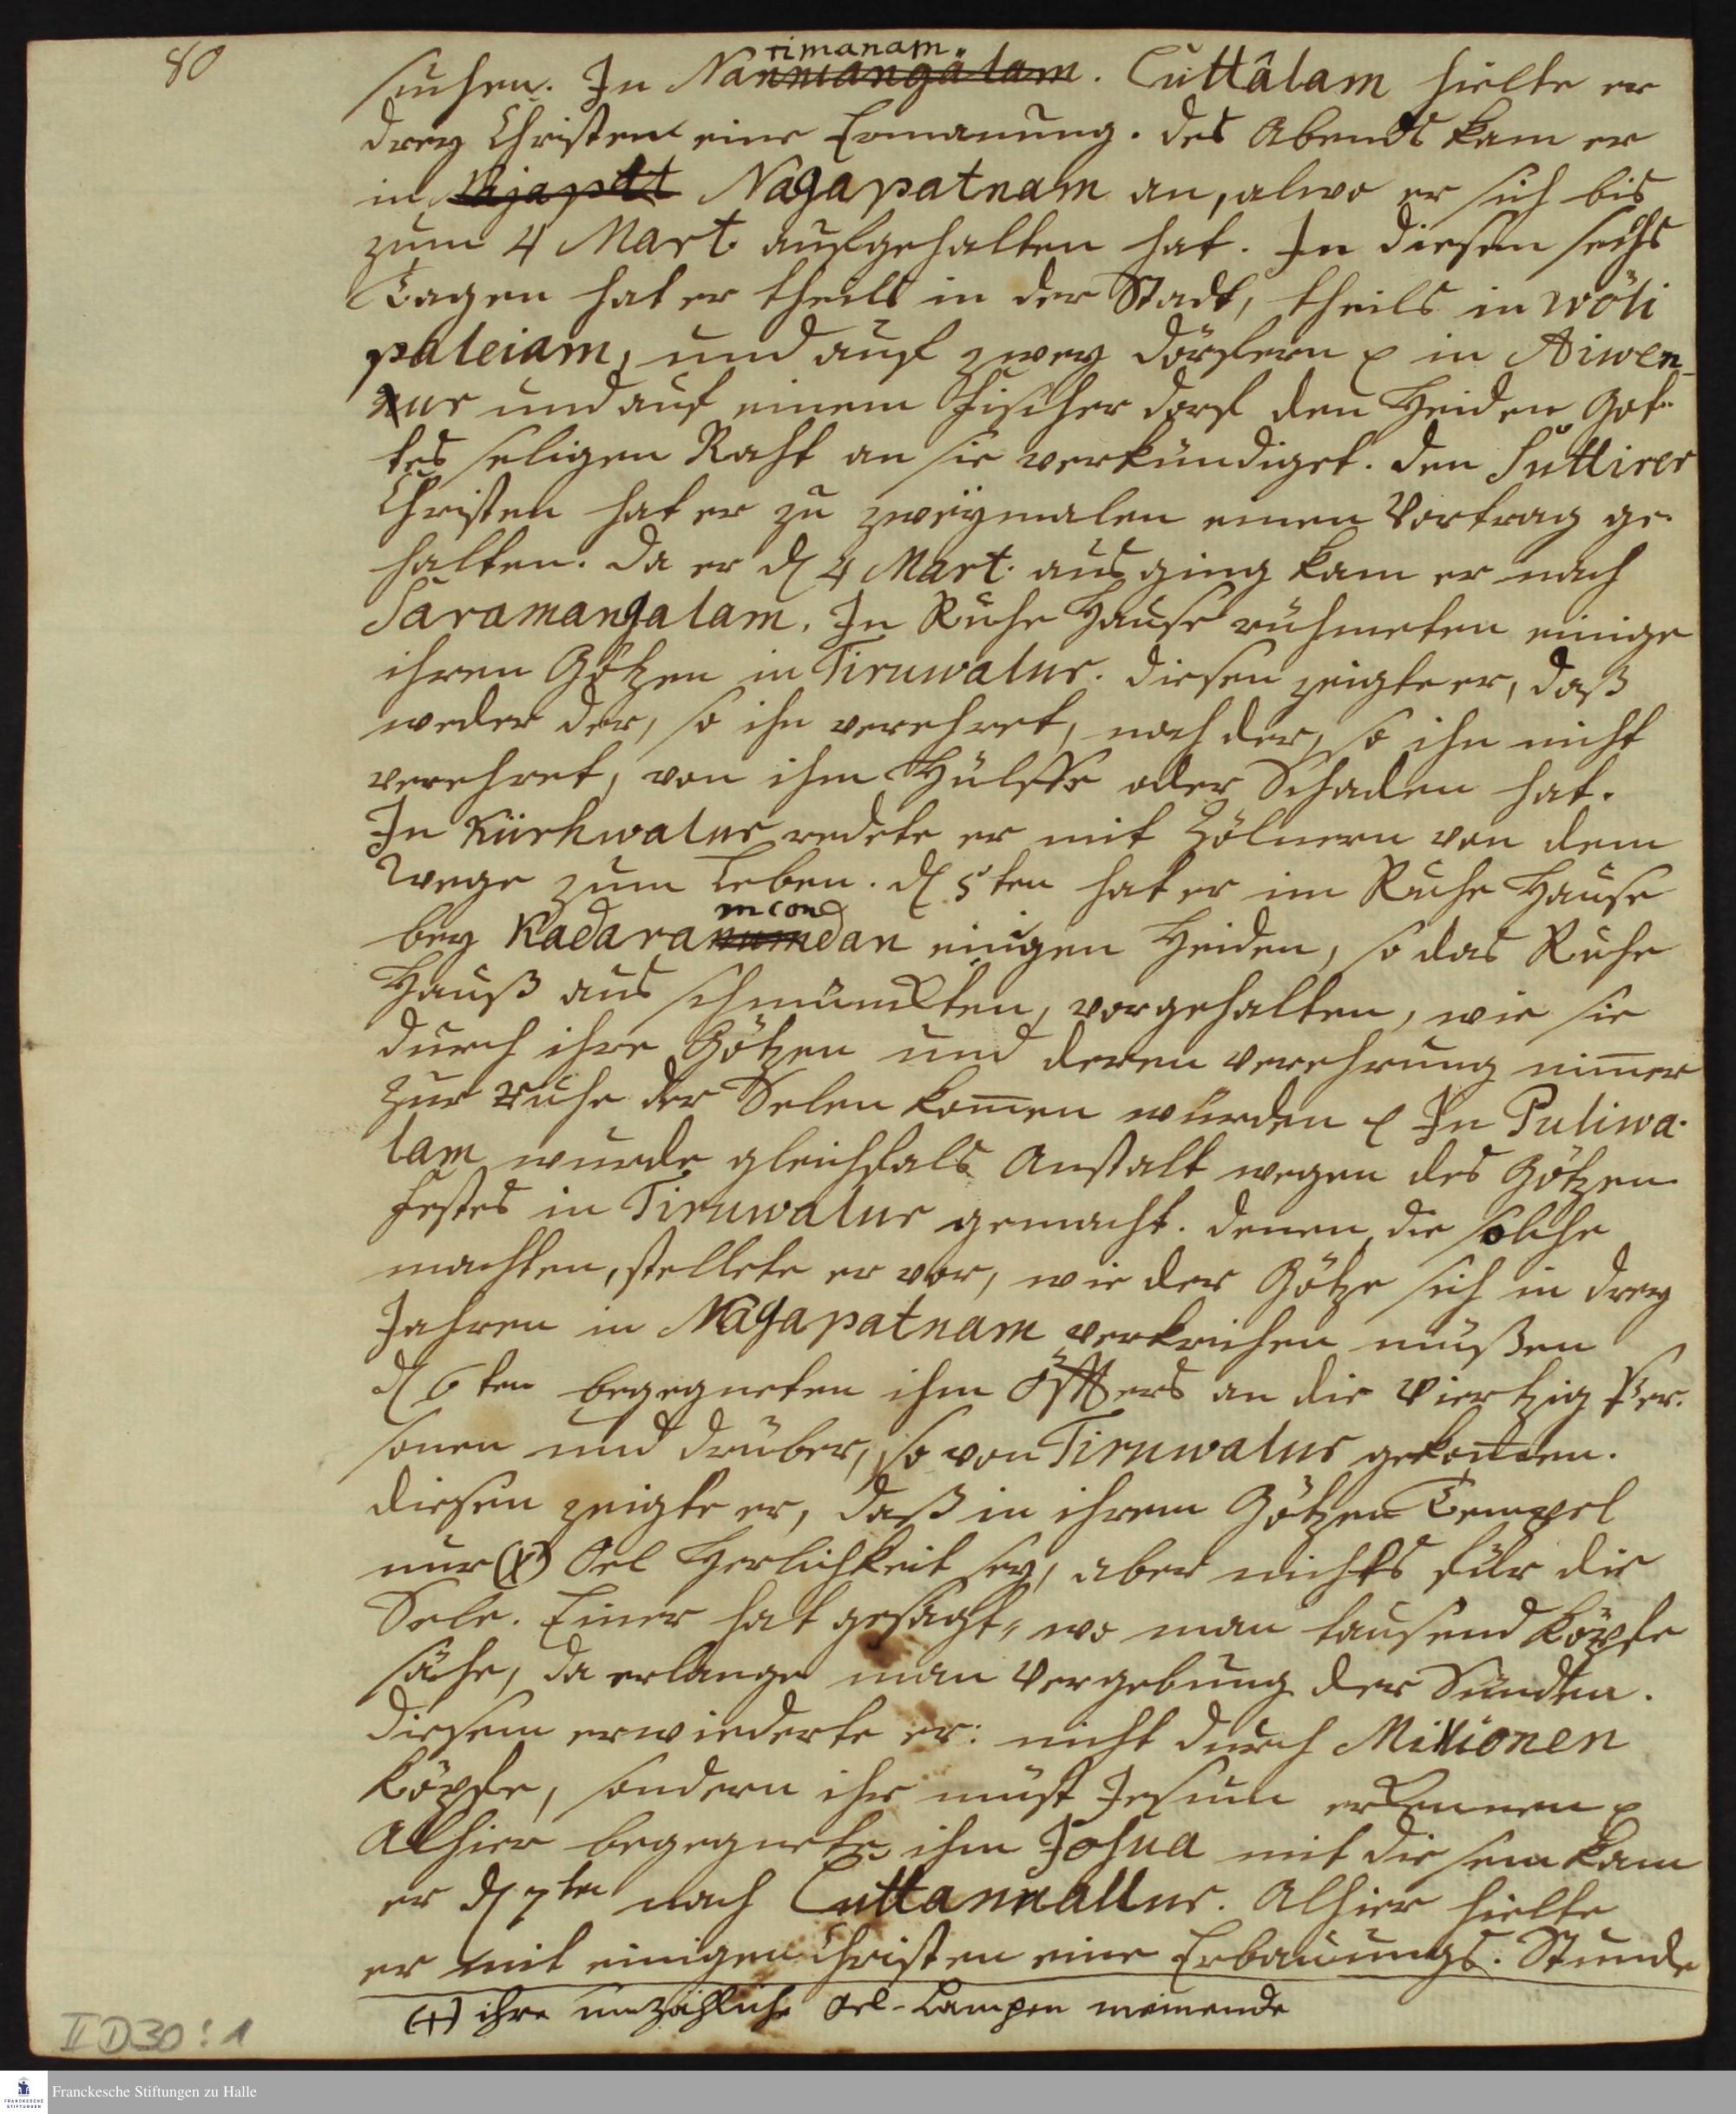 80
suchen. In Narimanam. Cuttâlam hielte er
drey Christen eine Ermanung. Des Abends kam er
in Nagapatnam an, alwo er sich bis
zum 4 Mart. aufgehalten hat. In diesen sechs
Tagen hat er theils in der Stadt, theils in Wöli
paleiam, und auf zwey Dörfern in Aiwen-
ur und auf einem Fischer dorf den Heiden Got-
tes seligen Raht an sie verkündiget. Den Suttirer
Christen hat er zu zweymalen einen Vortrag ge-
halten. Da er d 4 Mart. ausging kam er nach
Saramangalam. In Ruhe Hause rühmeten einige
ihren Götzen in Tiruwalur. Diesen zeigte er, daß
weder der, so ihn verehret, noch der, so ihn nicht
verehret, von ihm Hülffe oder Schaden hat.
In Kürhwalur redete er mit Zölnern von dem
Wege zum Leben. d 5ten hat er im Ruhe Hause
bey einigen Heiden, so das Ruhe
Hauß aus schmückten, vorgehalten, wie sie
durch ihre Götzen und deren verehrung nim̄er
zur ruhe der Selen kom̄en würden In Puliwa-
lam wurde gleichfals Anstalt wegen des Götzen-
festes in Tiruwalur gemacht. Denen, die solche
machten, stellete er vor, wie der Götze sich in drey
Jahren in Nagapatnam verkrichen müßen
d 6ten begegneten ihm öffters an die Viertzig Per-
sonen und drüber, so von Tiruwalur gekom̄en.
Diesen zeigte er, daß in ihrem Götzen Tempel
nur (+) Oel Herlichkeit sey, aber nichts für die
Sele. Einer hat gesagt, wo man tausend Köpfe
sähe, da erlange man Vergebung der Sünden.
Diesem erwiederte er: nicht durch Millionen
Köpfe, sondern ihr müst Jesum erkennen
Alhier begegnete ihm Josua mit diesem kam
er d 7ten nach Cuttannallur. Alhier hielte
er mit einigen Christen eine Erbauungs-Stunde
(+) ihre unzähliche Oel-Lampen meinende
II D30:1
FRANCKESCHE STIFTUNGEN
Franckesche Stiftungen zu Halle